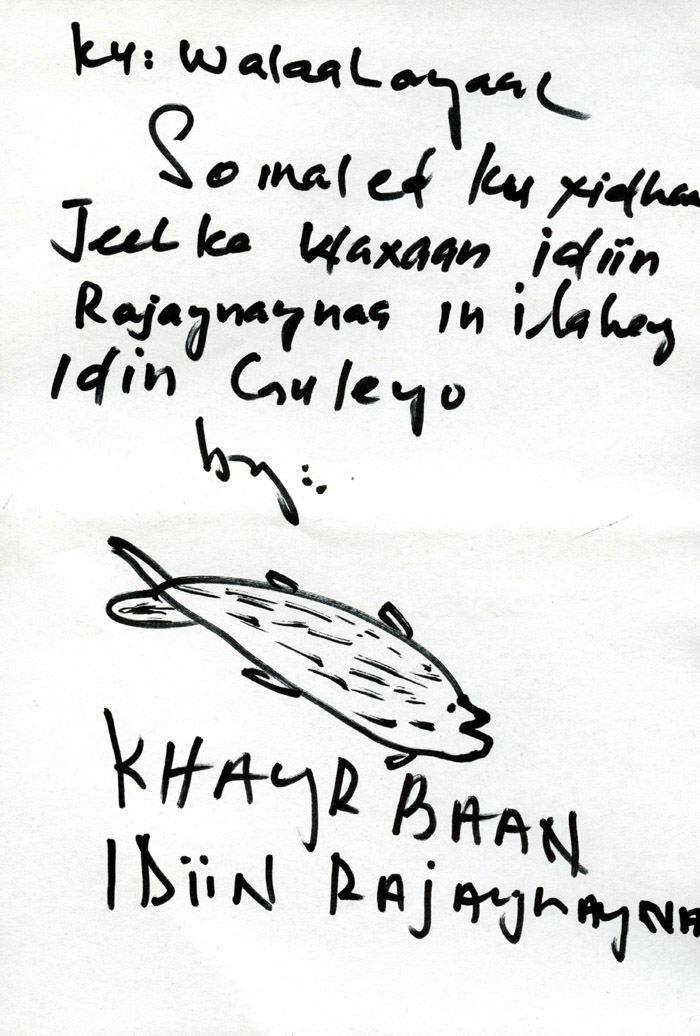 ku: Walaalayaal
Somaled ku xidhaa
Jeelka Waxaan idiin
Rajaynaynaa in ilahey
Idin Guleyo
by:.
KHAYR BAAN
IDiiN RAJAYNAYNA